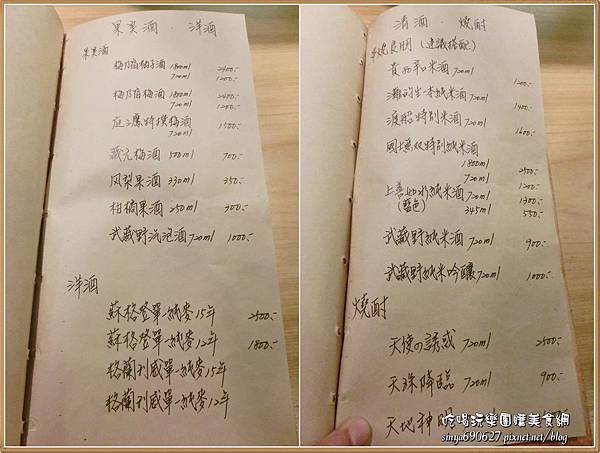 果実酒 · 洋酒
果実酒
梅乃宿柚子酒 1800ml 2400.-
720ml 1200.-
梅乃宿梅酒 1800ml 2400.-
720ml 1200.-
庭之鶯特撰梅酒 1500.-
720ml
蔵元梅酒 500ml 700.-
凤梨果酒 330ml 350.-
柑橘果酒 250ml 300.-
武藏野汽泡酒 720ml 1000.-
洋酒
蘇格登單一純麥15年 2500.-
蘇格登單一純麥12年 1800.-
格蘭利威單一純麥15年
格蘭利威單一純麥12年
清酒 · 燒酎
(建議搭配)
720ml 1200.-
灘的生一本純米酒 720ml 1400.-
渡船特別米酒 720ml 1600.-
國士無双特別純米酒
1800ml 2500.-
720ml 1200.-
上善如水純米酒 720ml 1300.-
(藍色) 345ml 550.-
武藏野純米酒 720ml 900.-
武藏野純米吟釀 720ml 1000.-
燒酎
天使の誘惑 720ml 2500.-
天孫降臨 720ml 900.-
天地神明
吃喝玩樂團購美食網
sinya690627.pixnet.net/blog